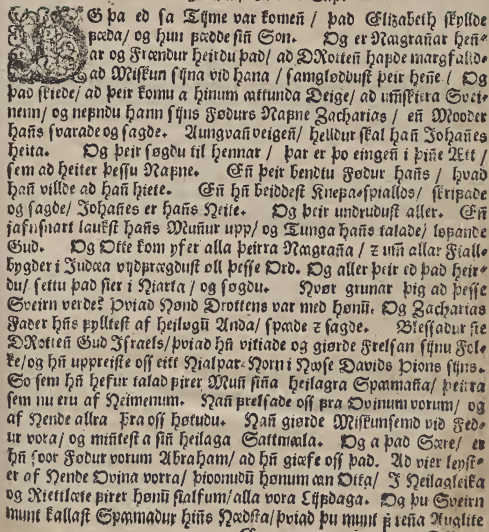 OG þa ed sa Tijme var komeñ / þad Elizabeth skyllde
þæda / og hun þædde siñ Son. Og er Nægrañar heñ-
ar og Frændur heirdu þad / ad DRotteñ hafde margfalld-
ad Miskun sijna vid hana / samglodduſt þeir heñe / Og
þad skiede / ad þeir komu a hinum attunda Deige / ad umskiera Svei-
nenn / og nefndu hann sijns Fødurs Nafne Zacharias / eñ Mooder
hañs svarade og sagde. Aungvañveigeñ / helldur skal hañ Johañes
heita. Og þeir søgdu til hennar / þar er þo eingeñ i þiñe Ætt /
sem ad heiter þessu Nafne. Eñ þeir bendtu Fødur hañs / hvad
hañ villde ad hañ hiete. Eñ hñ beiddest Knefa-spialldos / skrifade
og sagde / Johañes er hañs Heite. Og þeir undruduſt aller. Eñ
jafnsnart laukſt hañs Muñur upp / og Tunga hañs talade / lofande
Gud. Og Otte kom yfer alla þeirra Nægraña / z um allar Fiall-
bygder i Judæa vijdfrægduſt oll þesse Ord. Og aller þeir ed þad heir-
du / settu þad sier i Hiarta / og søgdu. Hvør grunar þig ad þesse
Sveirn verde? Þviad Hønd Drottens var med hønū. Og Zacharias
Fader hñs fylltest af heiløgū Anda / spæde z sagde. Blessadur sie
DRotteñ Gud Israels / þviad hñ vitiade og giørde Frelsan sijnu Fol-
ke / og hñ uppreiste oss eitt Hialpar-Horn i Hwse Davids Þions sijns.
So sem hñ hefur talad firer Muñ siña heilagra Spæmaña / þeirra
sem nu eru af Heimenum. Hañ frelsade oss fra Ovinum vorum / og
af Hende allra fra oss høtudu. Hañ giørde Miskunsemd vid Fed-
ur vora / og miñtest a siñ heilaga Sattmæla. Og a þad Sære / er
hñ soor Fødur vorum Abraham / ad hñ giæfe oss þad. Ad vier leyst-
er af Hende Ovina vorra / þioonudū hønum æn Otta / J Heilagleika
og Riettlæte firer hønū sialfum / alla vora Lijfdaga. Og þu Sveirn
munt kallaſt Spæmadur hiñs Hædsta / þviad þu munt f teña Auglite